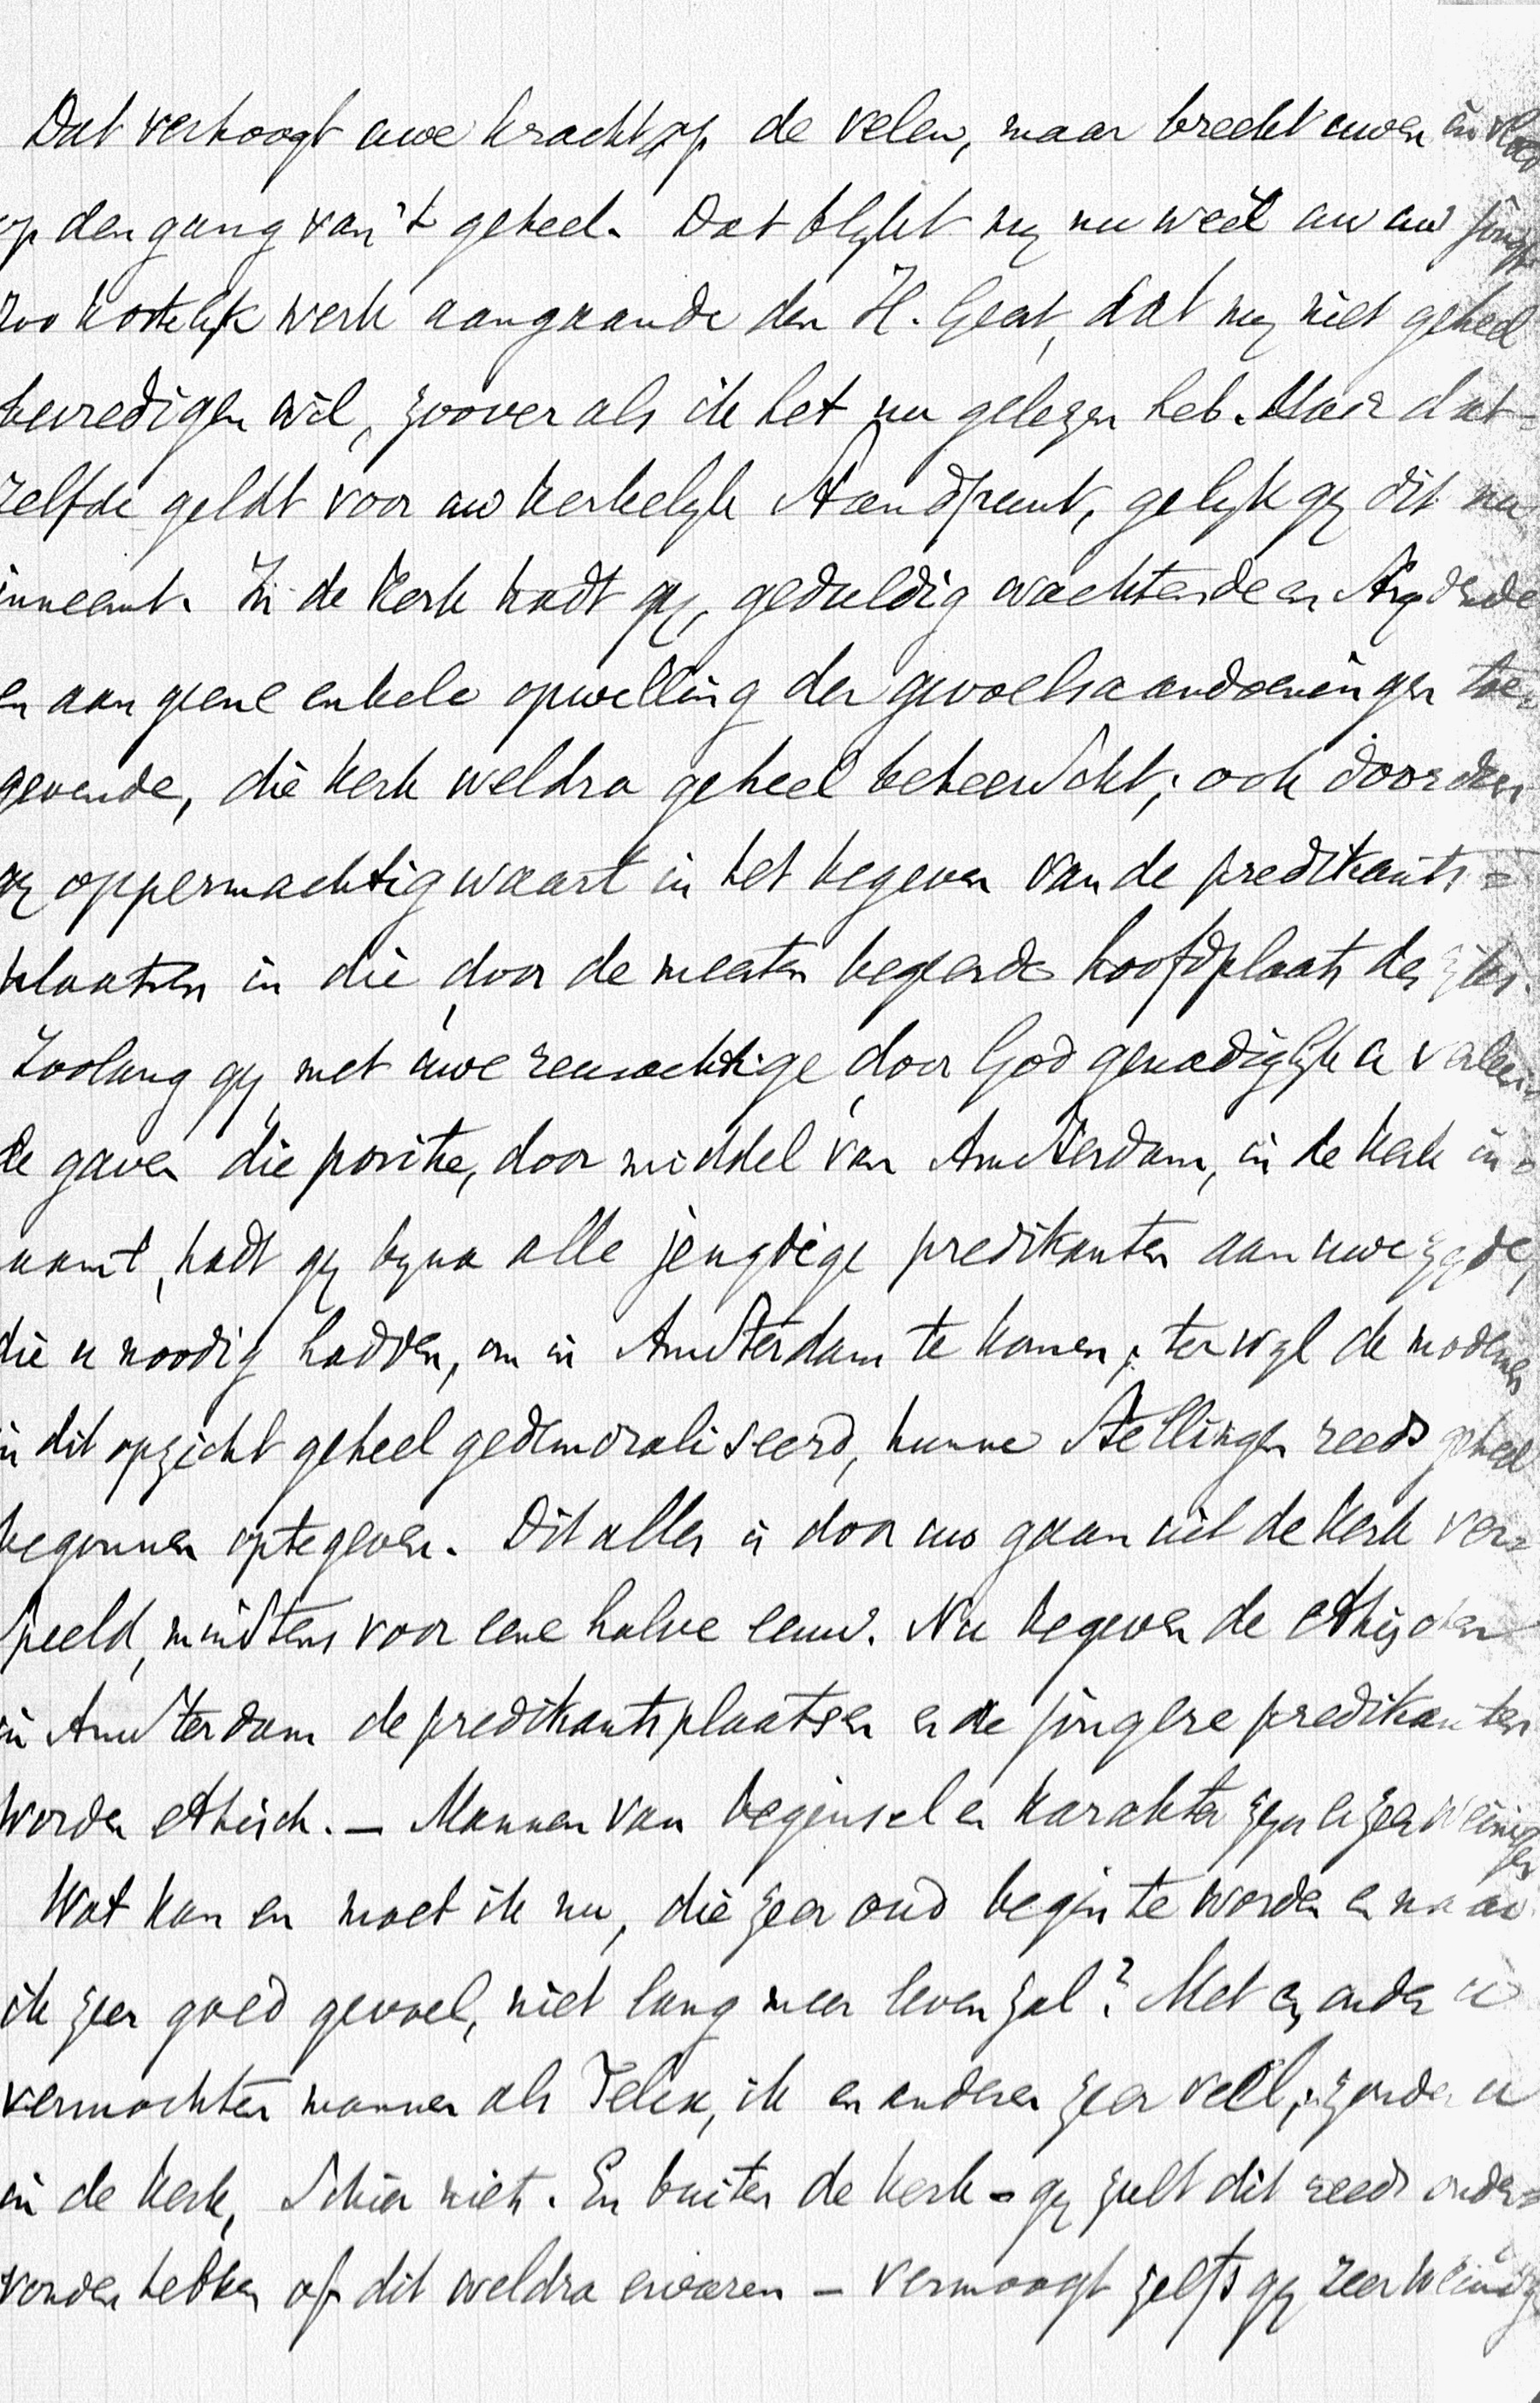 Dat verhoogt uwe kracht op de velen, maar breekt uwen invloed
op den gang van 't geheel. Dat blykt my nu weêr au uw jongst
zoo kostelyk werk aangaande den H. Geest, dat my niet geheel
bevredigen wil, zoover als ik het nu gelezen heb. Maar dat=
zelfde geldt voor uw kerkelyk standpunt, gelyk gy dit nu
inneemt. In de Kerk hadt gy, geduldig wachtende en strydende
en aan geene enkele opwelling der gevoelsaandoeningen toe=
gevende, die kerk weldra geheel beheerscht; ook doordien
gy oppermachtig waart in het begeven van de predikants=
plaatsen in die, door de meesten begeerde hoofdplaats des ryks.
Zoolang gy met uwe reusachtige, door God genadiglyk u verleen
de gaven die positie, door middel van Amsterdam, in de kerk in=
naamt, hadt gy byna alle jeugdige predikanten aan uwe zyde,
die u noodig hadden, om in Amsterdam te komen; terwyl de modernen
in dit opzicht geheel gedemoraliseerd, hunne stellingen reeds geheel
begonnen optegeven. Dit alles is door uw gaan uit de kerk ver=
speeld, minstens voor eene halve eeuw. Nu begeven de ethischen
in Amsterdam de predikantsplaatsen en de jongere predikanten
worden ethisch. — Mannen van beginsel en karakter zyn er zeer weinige
Wat kan en moet ik nu, die zeer oud begin te worden en naar
ik zeer goed gevoel, niet lang meer leven zal? Met en onder u
vermochten mannen als Felix, ik en anderen zeer veel; zonder u
in de kerk, schier niets. En buiten de kerk – gy zult dit reeds onder=
vonden hebben of dit weldra ervaren – vermoogt zelfs gy zeer weinig